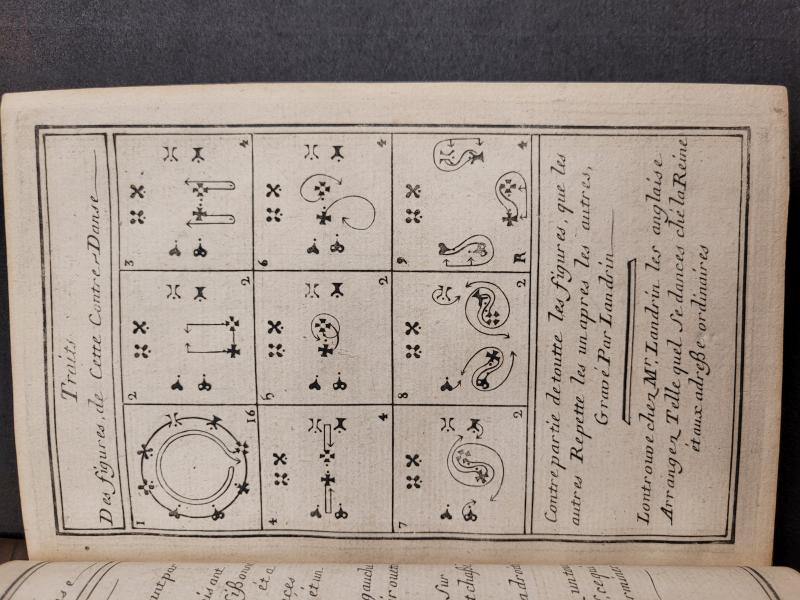 Traits
Des figures, de Cette Contre-Danse
1 2 3
16 2 4
4 5 6
4 2 4
7 8 9
2 2 R 4
Contrepartie de toutte les figures, que les
autres Repette les un apres les autres,
Gravé Par Landrin
Lontrouve chez Mr. Landrin les anglaise
Arrangez Telle quel Se dances ché la Reine
et aux adresse ordinaires
et un
gauche
Sur